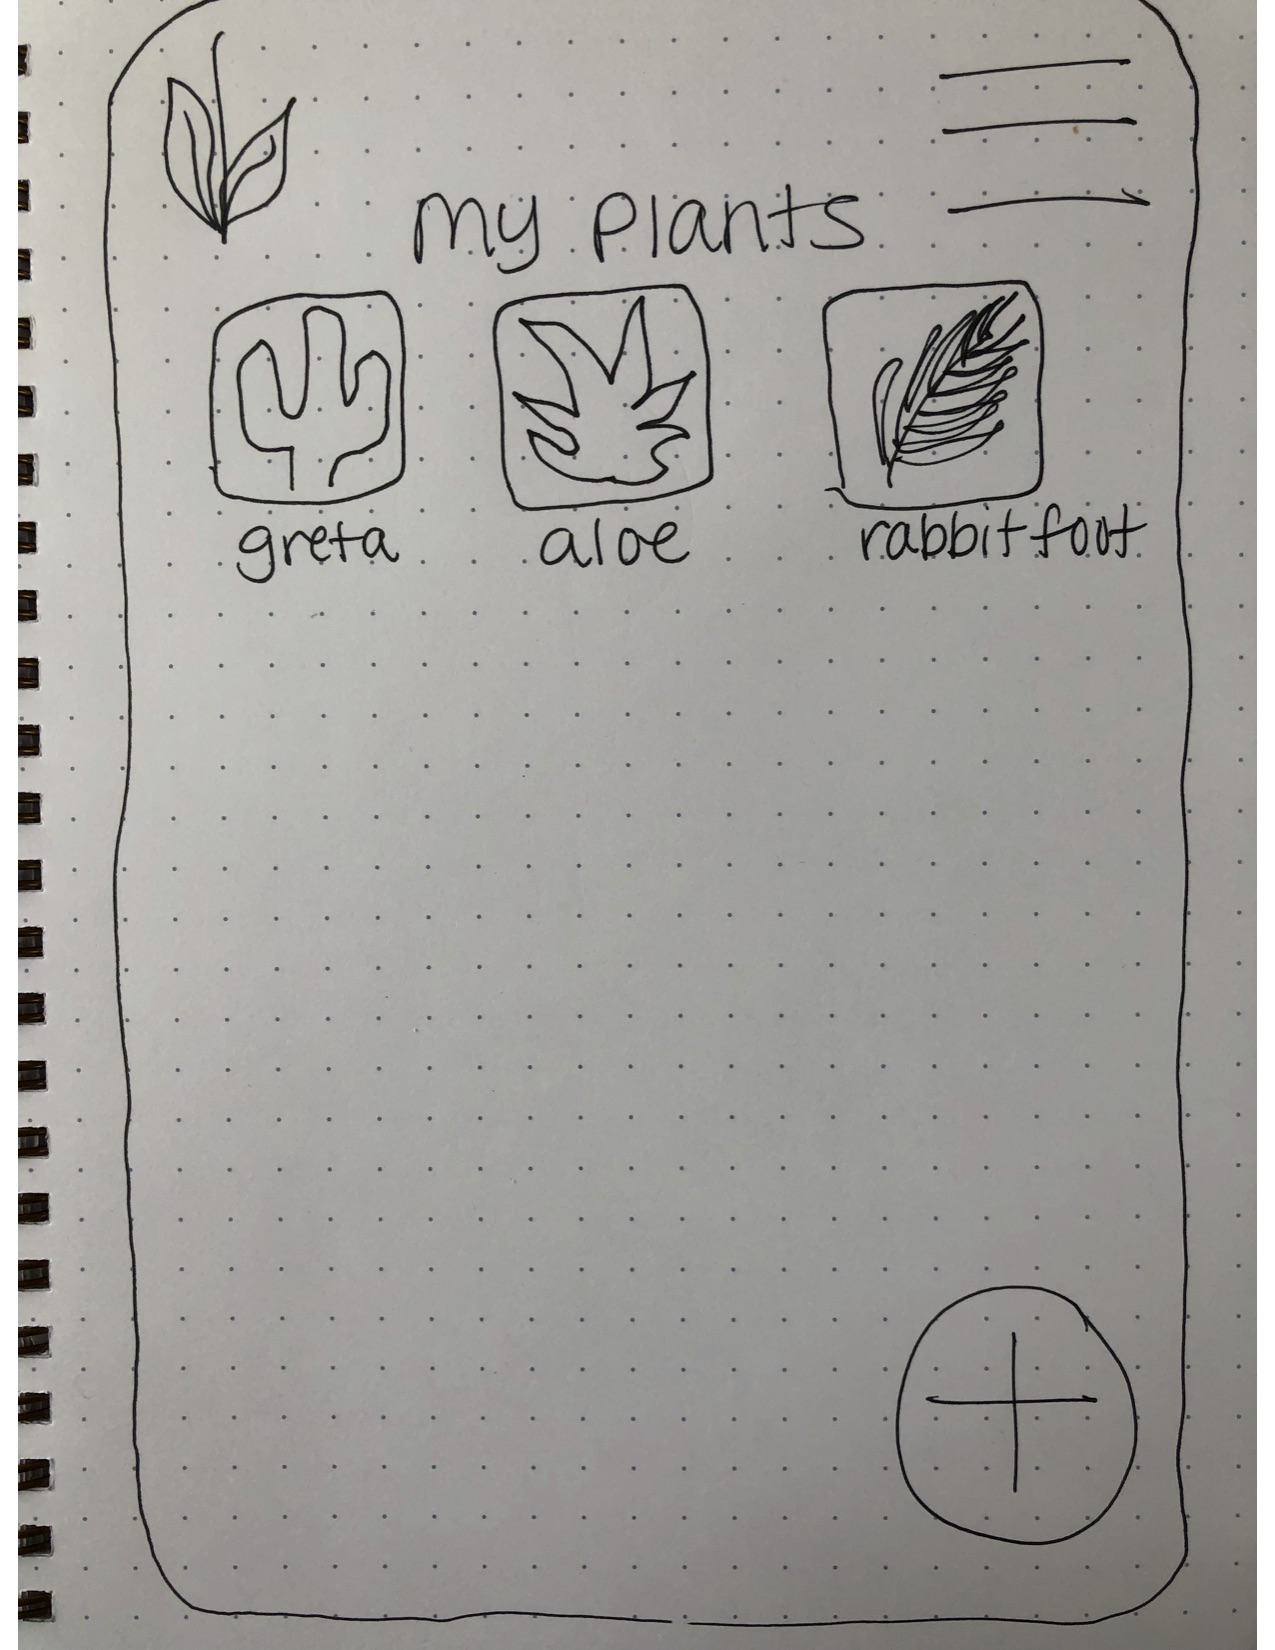 my plants
greta aloe rabbit foot